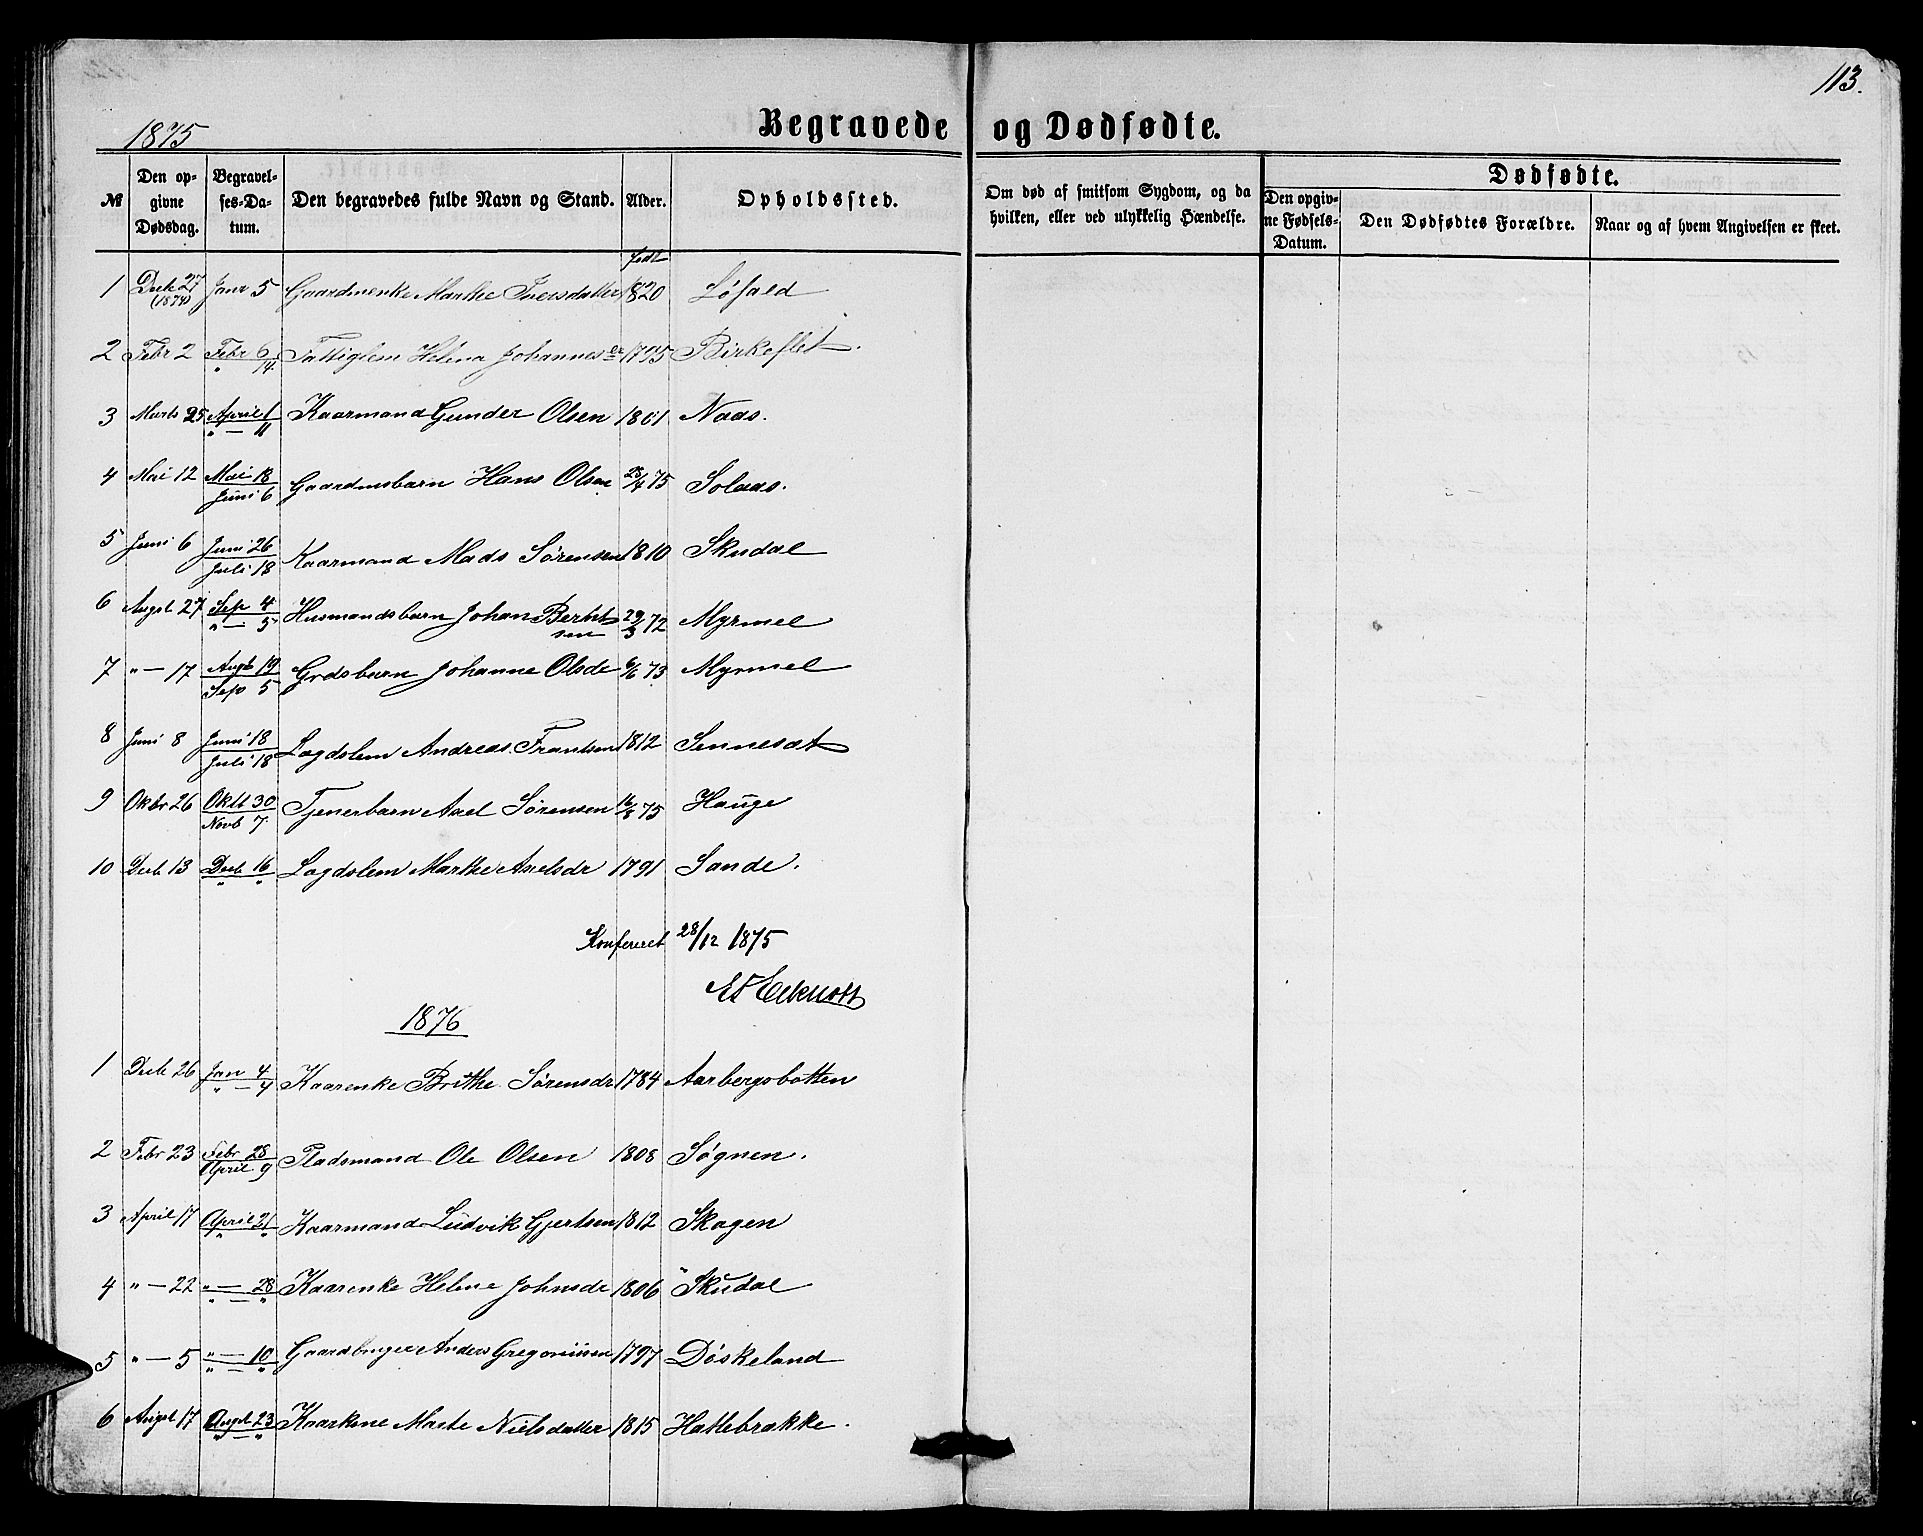 113.
1875
Begravede og Dødfødte.
№ Den opgivne Dødsdag. Begravelses-Datum. Den begravedes fulde Navn og Stand. Alder. Opholdssted. Om død af smitsom Sygdom, og da hvilken, eller ved ulykkelig Hændelse.
Dødfødte.
Den opgivne Fødsels-Datum. Den Dødfødtes Forældre. Naar og af hvem Angivelsen er skeet.
født
1 Decb 27 (1874) Janr 5 Gaardmenke Marthe Iversdatter 1820 Løfald
2 Febr 2 Febr 6 " 14 Fattiglem Helena Johannesdr 1795 Birkeflet.
3 Marts 25 April 1 " — 11 Kaarmand Gunder Olsen 1801 Naas.
4 Mai 12 Mai 18 Juni 6 Gaardmsbarn Hans Olsen 28/4 75 Solaas.
5 Juni 6 Juni 26 Juli 18 Kaarmand Mads Sørensen 1810 Skudal
6 Augst 27 Sep 4 " — 5 Husmandsbarn Johan Berntsen 29/3 72 Myrmel
7 " — 17 Augst 19 Sep 5 Grdsbarn Johanne Olsdr 6/6 73 Myrmel
8 Juni 8 Juni 18 Juli 18 Lægdslem Andreas Frantsen 1812 Sennesæt
9 Oktbr 26 Oktb 30 Novb 7 Tjenerbarn Axel Sørensen 16/8 75 Hauge
10 Decb 13 Decb 16 " " Lægdslem Marthe Axelsdr 1791 Sande.
Konfereret 28/12 1875
1876
1 Decb 26 Jan 4 " — 4 Kaarenke Brithe Sørensdr 1784 Aarbergsbotten
2 Febr 23 Febr 28 April 9 Pladsmand Ole Olsen 1808 Søgnen.
3 April 17 April 21 " " Kaarmand Ludvik Gjertsen 1812 Skagen
4 " — 22 " — 28 " — " Kaarenke Helene Johnsdr 1806 Skudal
5 " — 5 " — 10 " — " Gaardbruger Anders Gregoriussen 1797 Døskeland
6 Augst 17 Augst 23 " — " Kaarkone Marte Nielsdatter 1815 Hattebrække.